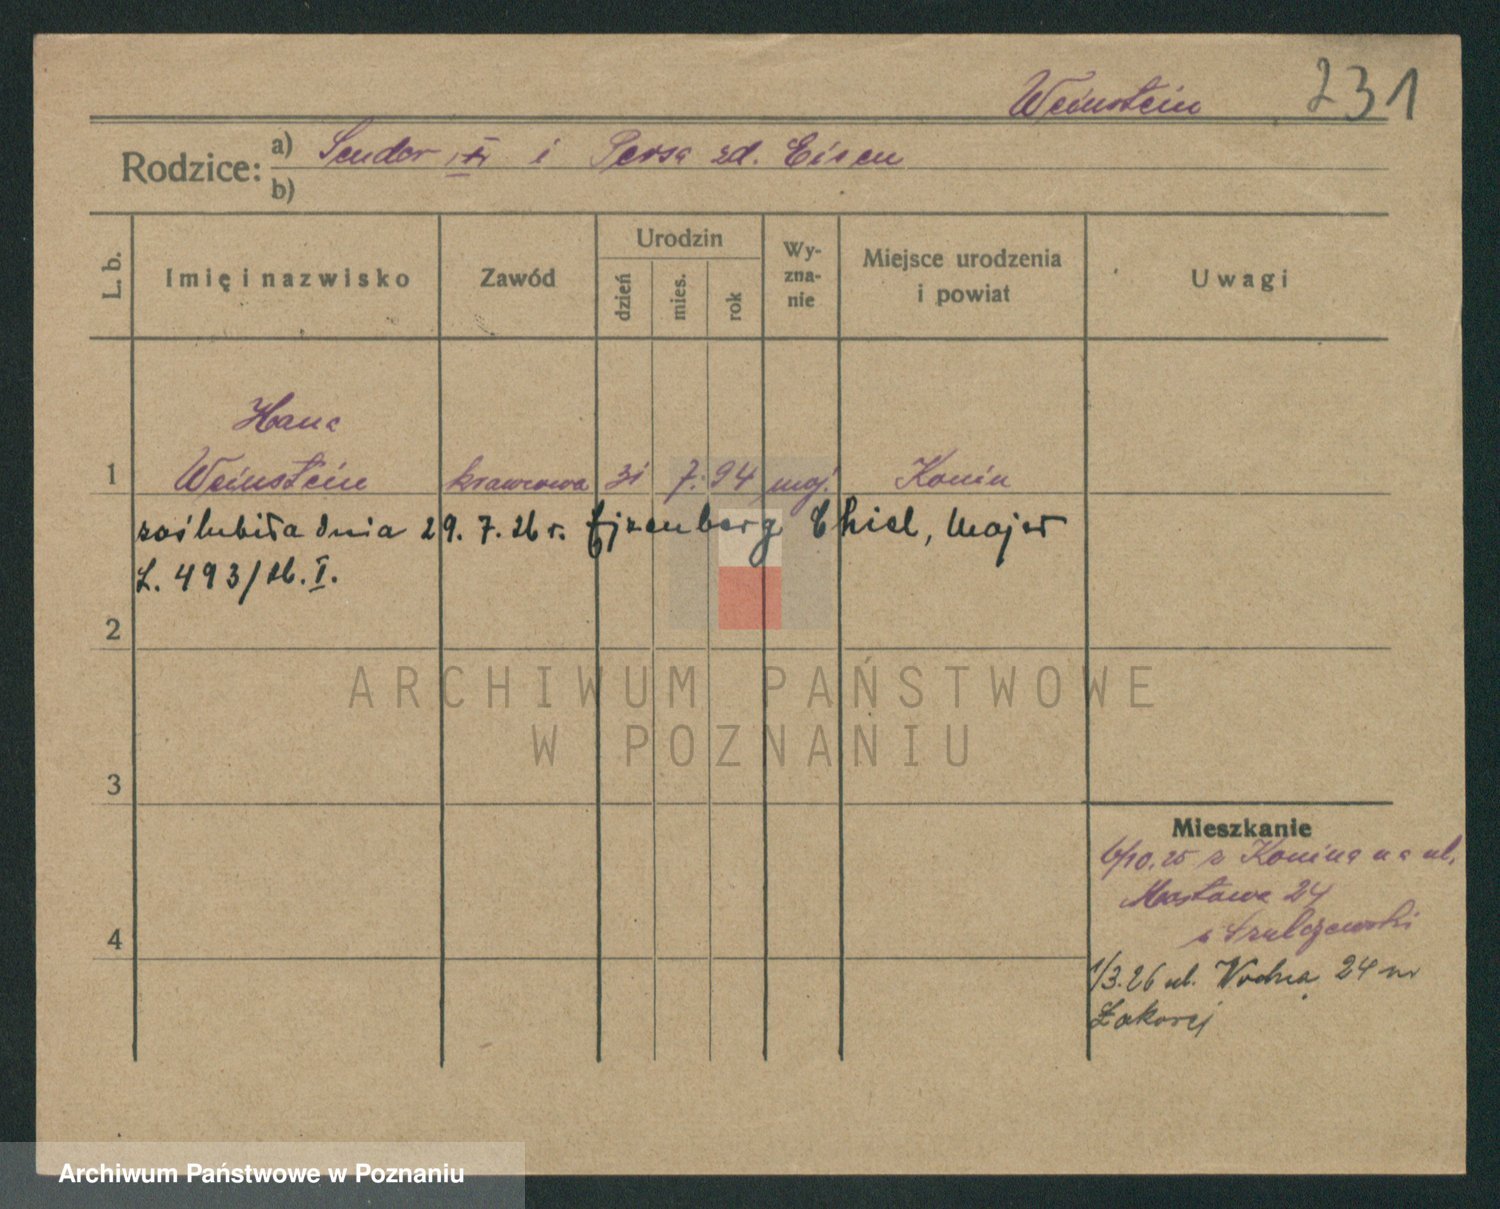 Weinstein 231
Rodzice: a) Sendor i Persa zd. Eisen
b)
L. b.
Imię i nazwisko
Zawód
Urodzin
dzień
mies.
rok
Wy-
zna-
nie
Miejsce urodzenia
i powiat
Uwagi
Hana
1 Weinstein krawcowa 31 7. 94 moj. Konin
zaślubiła dnia 29. 7. 26 r. Ejzenberg Chiel, Majer
L. 493/26. I.
2
3
4
Mieszkanie
6/10. 25 z Konina na ul.
Mostowa 24
Szulczewski
1/3. 26 ul. Wodna 24
ARCHIWUM PAŃSTWOWE
W POZNANIU
Archiwum Państwowe w Poznaniu